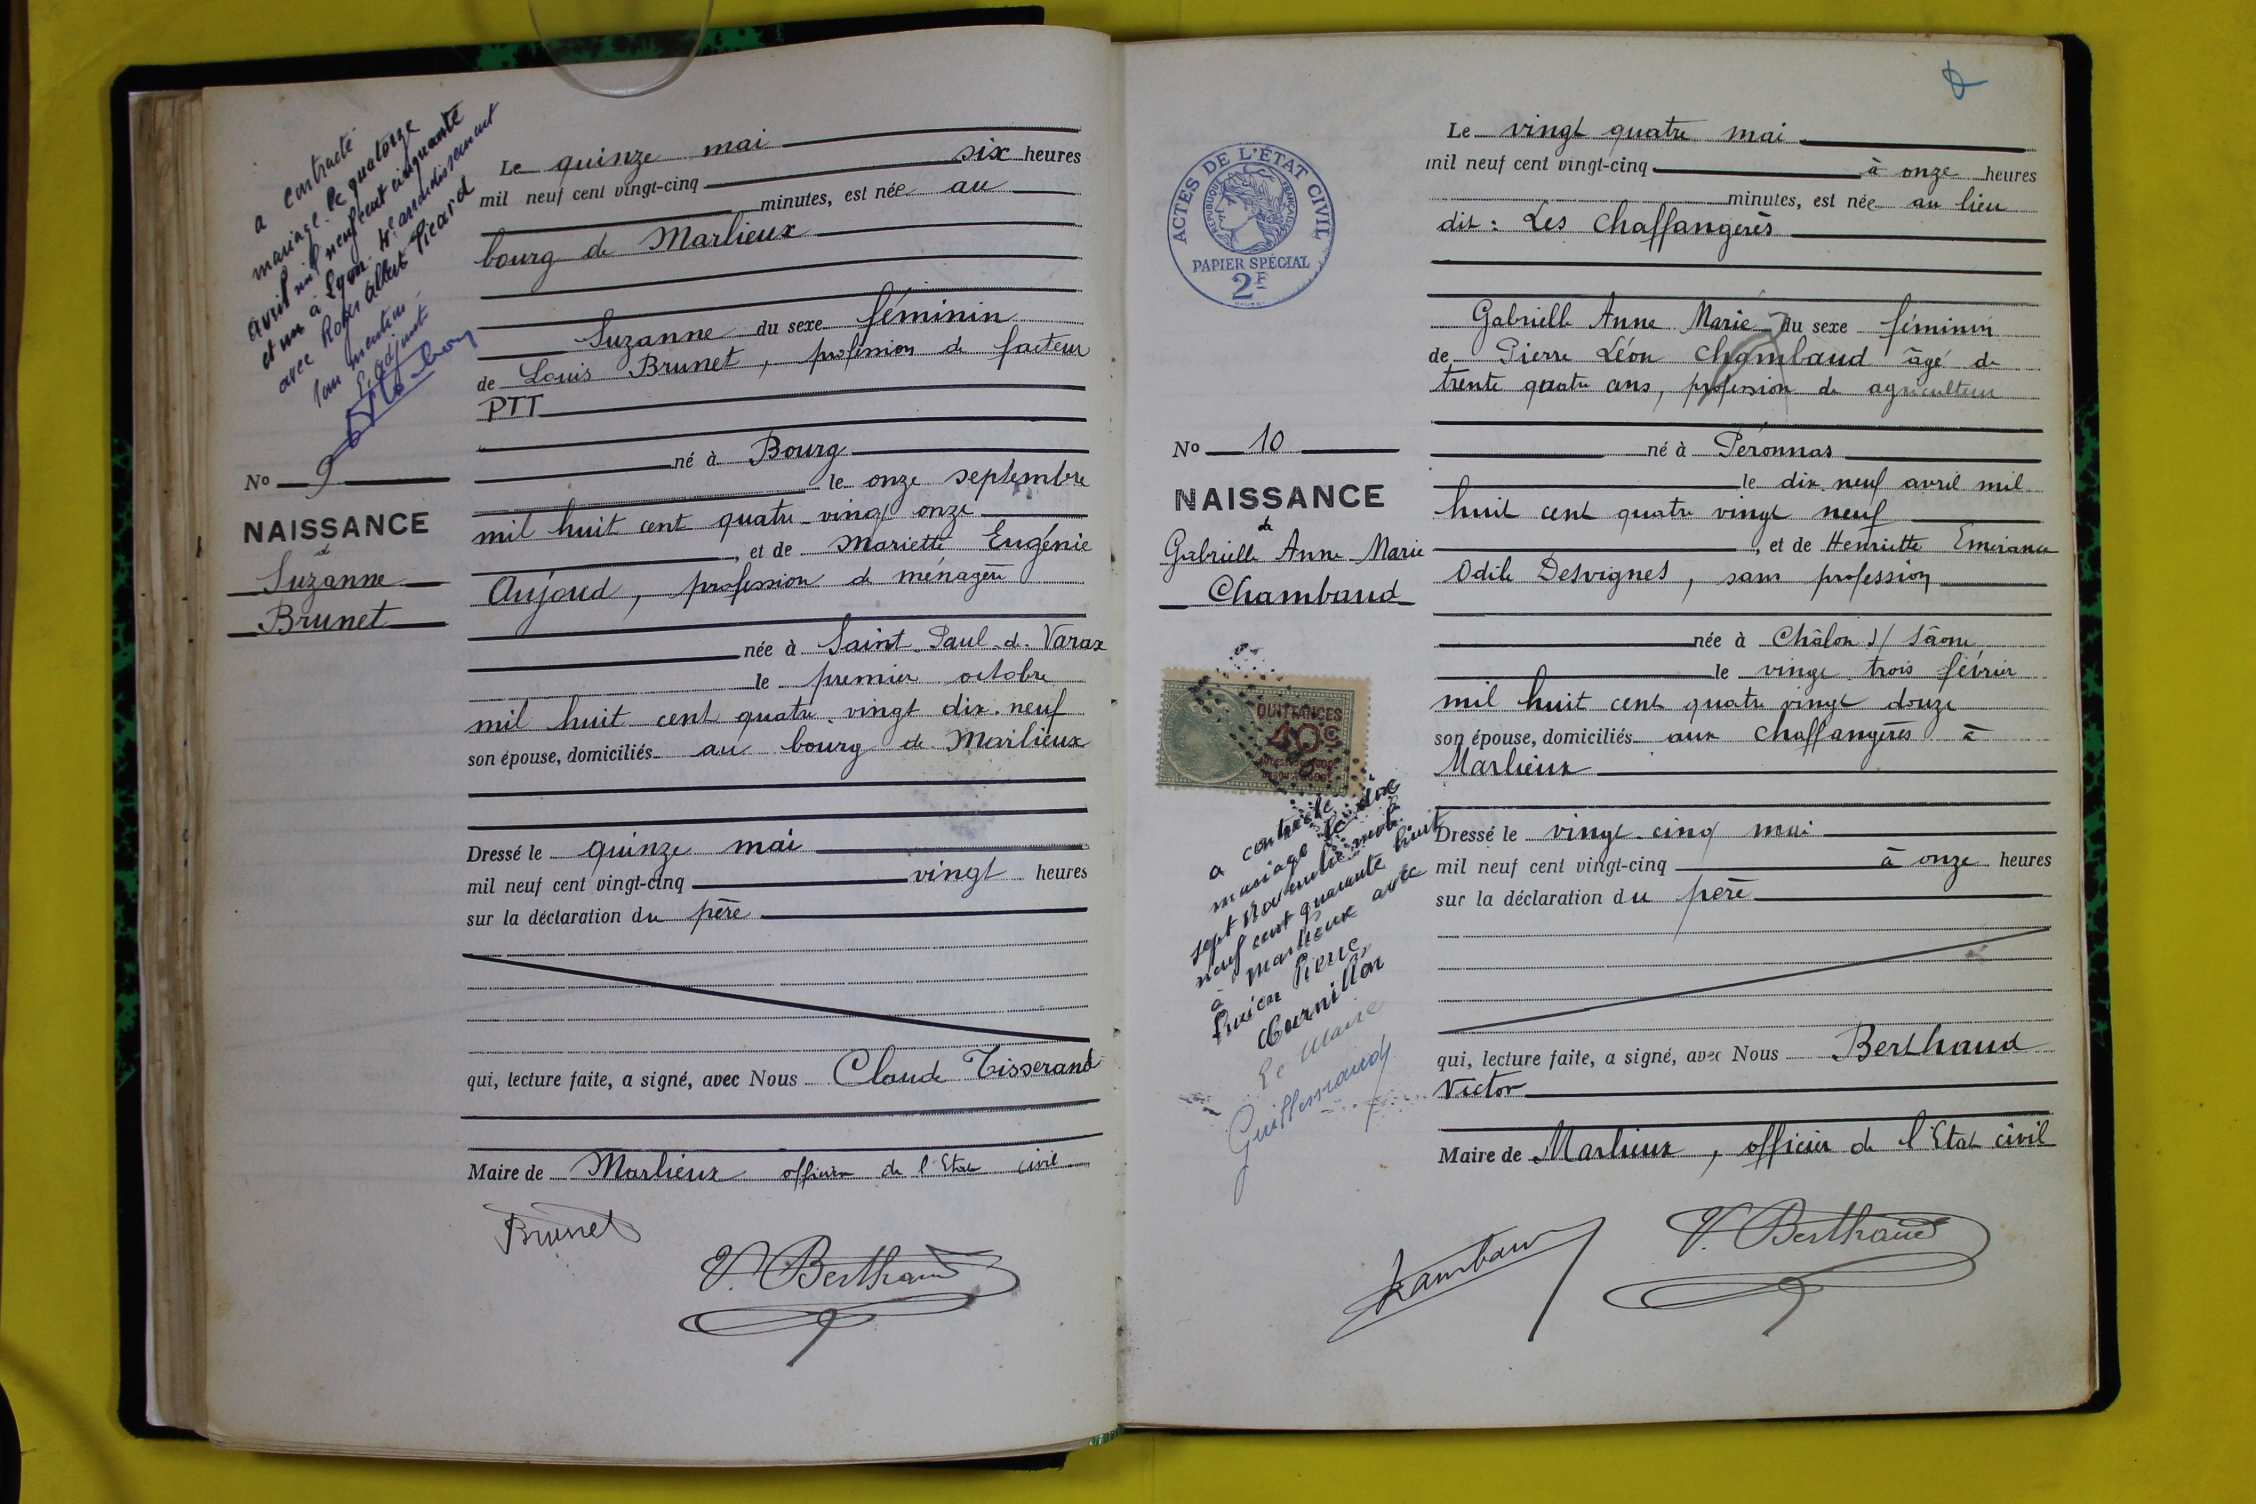 a contracté
mariage le quatorze
avril mil neuf cent cinquante
et un à Lyon 4e arrondissement
avec Roger Albert Picard
L'adjoint
No 9
NAISSANCE
de
Suzanne
Brunet
Le quinze mai
mil neuf cent vingt-cinq six heures
minutes, est née au
bourg de Marlieux
Suzanne du sexe féminin
de Louis Brunet, profession de facteur
PTT
né à Bourg
le onze septembre
mil huit cent quatre-vingt onze
, et de Mariette Eugénie
Aujoud, profession de ménagère
née à Saint-Paul-de-Varax
le premier octobre
mil huit cent quatre-vingt dix-neuf
son épouse, domiciliés au bourg de Marlieux
Dressé le quinze mai
mil neuf cent vingt-cinq vingt heures
sur la déclaration du père
qui, lecture faite, a signé, avec Nous Claude Tisserand
Maire de Marlieux officier de l'Etat civil
Brunet
V. Berthaud
ACTES DE L'ÉTAT CIVIL
RÉPUBLIQUE FRANÇAISE
PAPIER SPÉCIAL
2F
No 10
NAISSANCE
de
Gabrielle Anne Marie
Chambaud
QUITTANCES
40c
a contracté
mariage le dix
sept Novembre mil
neuf cent quarante huit
à Marlieux avec
Lucien Pierre
Cornillon
Le Maire
Le vingt quatre mai
mil neuf cent vingt-cinq à onze heures
minutes, est née au lieu
dit : Les Chaffangères
Gabrielle Anne Marie du sexe féminin
de Pierre Léon Chambaud âgé de
trente quatre ans, profession de agriculteur
né à Péronnas
le dix-neuf avril mil
huit cent quatre vingt neuf
, et de Henriette Emerance
Odile Desvignes, sans profession
née à Châlon s/ Sâone
le vingt trois février
mil huit cent quatre vingt douze
son épouse, domiciliés aux Chaffangères à
Marlieux
Dressé le vingt-cinq mai
mil neuf cent vingt-cinq à onze heures
sur la déclaration du père
qui, lecture faite, a signé, avec Nous Berthaud
Victor
Maire de Marlieux, officier de l'Etat civil
Chambaud
V. Berthaud